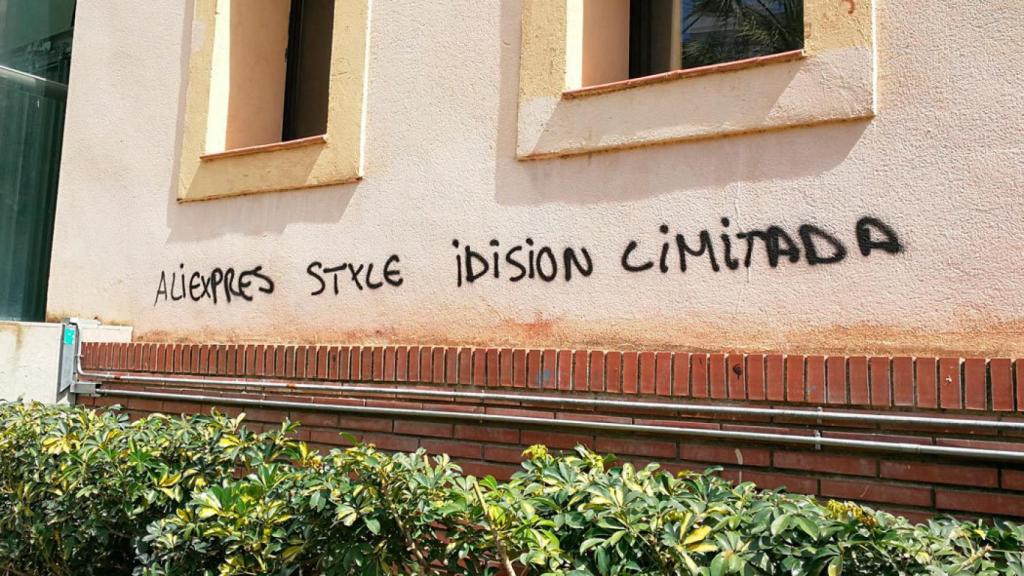 ALiEXPRES STYLE iDiSION LiMiTADA